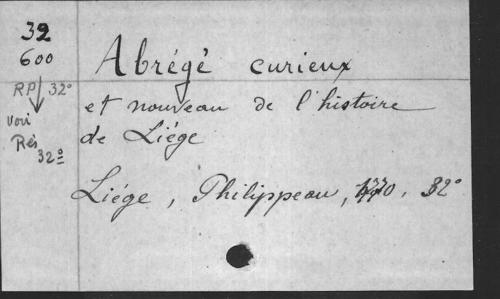 32
600
RP 32°
voir
Rés
32°
Abrégé curieux
et nouveau de l'histoire
de Liége
Liége, Philippeau, 1770. 32°